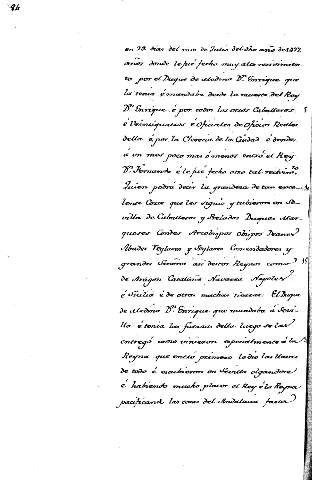 84
en 29 dias del mes de Julio del dho año de 1477
años donde le fué fecho muy alto recivimien
to por el Duque de Medina Dn. Enrrique que
la tenia é mandaba desde la muerte del Rey
Dn. Enrique é por todos los otros Caballeros
é Veintiquatros é Oficiales de Oficios Reales
della é por la Clerecia de la Ciudad é donde
á un mes poco mas ó menos entró el Rey
Dn. Fernando é le fué fecho otro tal recivim.to
Quien podrá decir la grandeza de tan exce
lente Corte que les siguió y tubieron en Se
villa de Caballeros y Prelados Duques Mar
queses Condes Arzobispos Obispos Deanes
Abades Priores y Comendadores y
grandes Señores asi destos Reynos como
de Aragon Cataluña Navarra Napoles
é Sicilia é de otras muchas El Duque
de Medina Dn. Enrrique que mandaba á Sevi
lla é tenia las fuerzas della luego se las
entregó como vinieron especialmente á la
Reyna que entró primero le dió las llaves
de todo é estubieron en Sevilla olgandose
é habiendo mucho placer el Rey é la Reyna
pacificando las cosas del Andalucia fasta